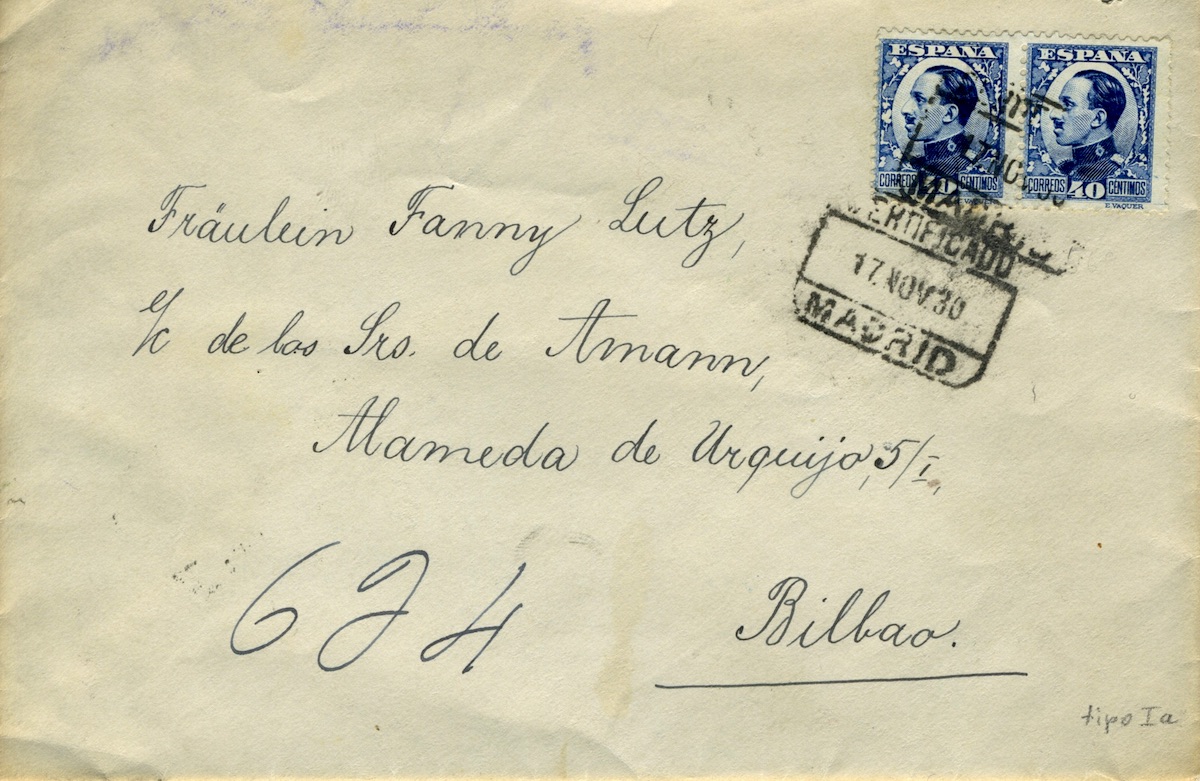 ESPAÑA ESPAÑA
CORREOS 40 CENTIMOS CORREOS 40 CENTIMOS
E. VAQUER
17 NOV 30
MADRID
CERTIFICADO
17 NOV 30
MADRID
Fräulein Fanny Lutz,
e/c de los Srs. de Amann,
Alameda de Urquijo, 5/I,
624
Bilbao.
tipo Ia